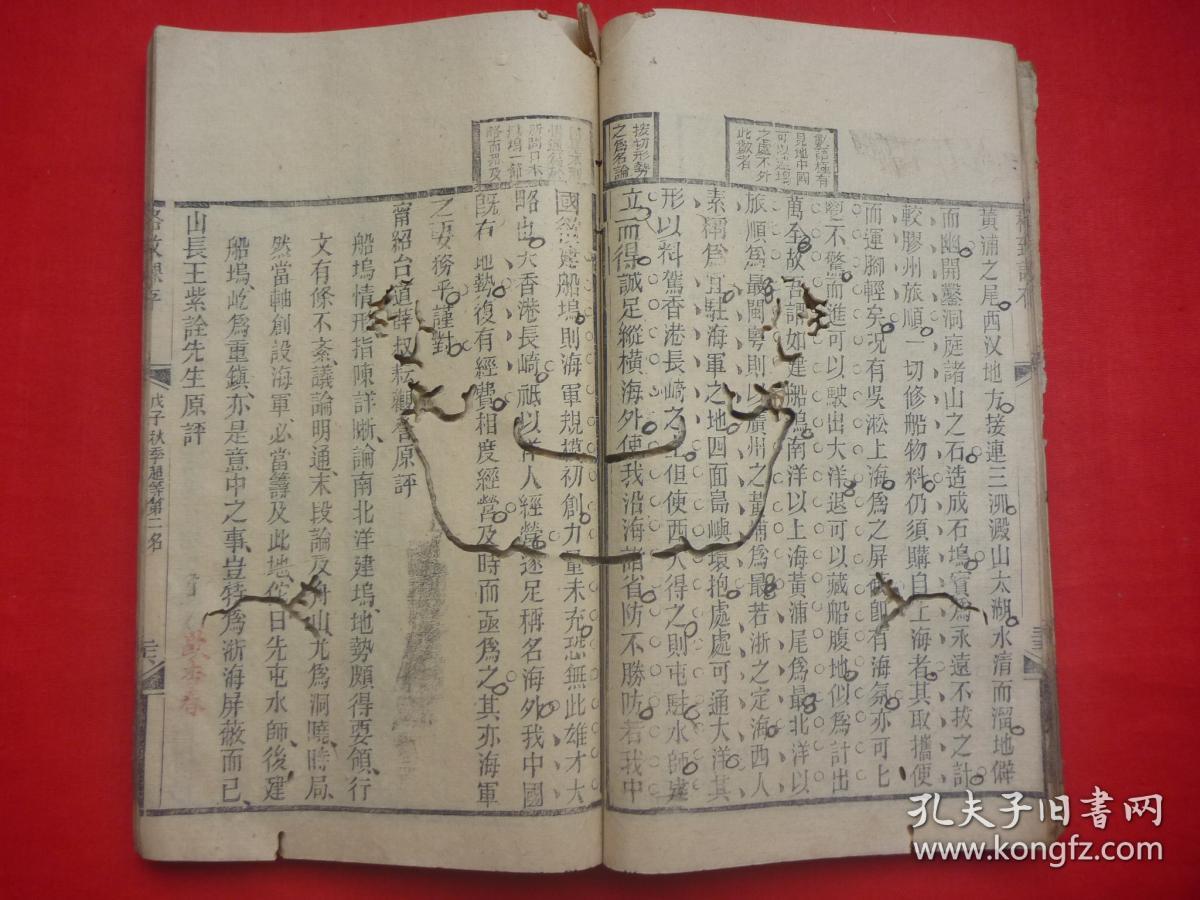 數語極有
見地中國
可以造塢
之處不外
此數者
按切形勢
之為名論
黃浦之尾西汊地方接連三泖澱山太湖水清而溜地僻
而幽開鑿洞庭諸山之石造成石塢實為永遠不拔之計
較膠州旅順一切修船物料仍須購自上海者其取攜便
而運腳輕矣況有吳淞上海為之屏
有海氛亦可匕
不驚而進可以駛出大洋退可以藏船腹地似為計出
萬全故吾謂如建船塢南洋以上海黃浦尾為最北洋以
旅順為最閩粵則以廣州之黃浦為最若浙之定海西人
素稱為宜駐海軍之地四面島嶼環抱處處可通大洋其
形以料駕香港長崎之上但使西人得之則屯駐水師建
立而得誠足縱橫海外使我沿海諸省防不勝防若我中
國
建船塢則海軍規模初創力量未充恐無此雄才大
略也
香港長崎祇以
人經營遂足稱名海外我中國
既有
地勢復有經費相度經營及時而亟為之其亦海軍
之要務乎謹對
甯紹台道薛叔耘觀詧原評
船塢情形指陳詳晰論南北洋建塢地勢頗得要領行
文有條不紊議論明通末段論及舟山尤為洞曉時局
然當軸創設海軍必當籌及此地佗日先屯水師後建
船塢屹為重鎮亦是意中之事豈特為浙海屏蔽而已
山長王紫詮先生原評
戊子秋季超等第二名
孔夫子旧书网
www.kongfz.com